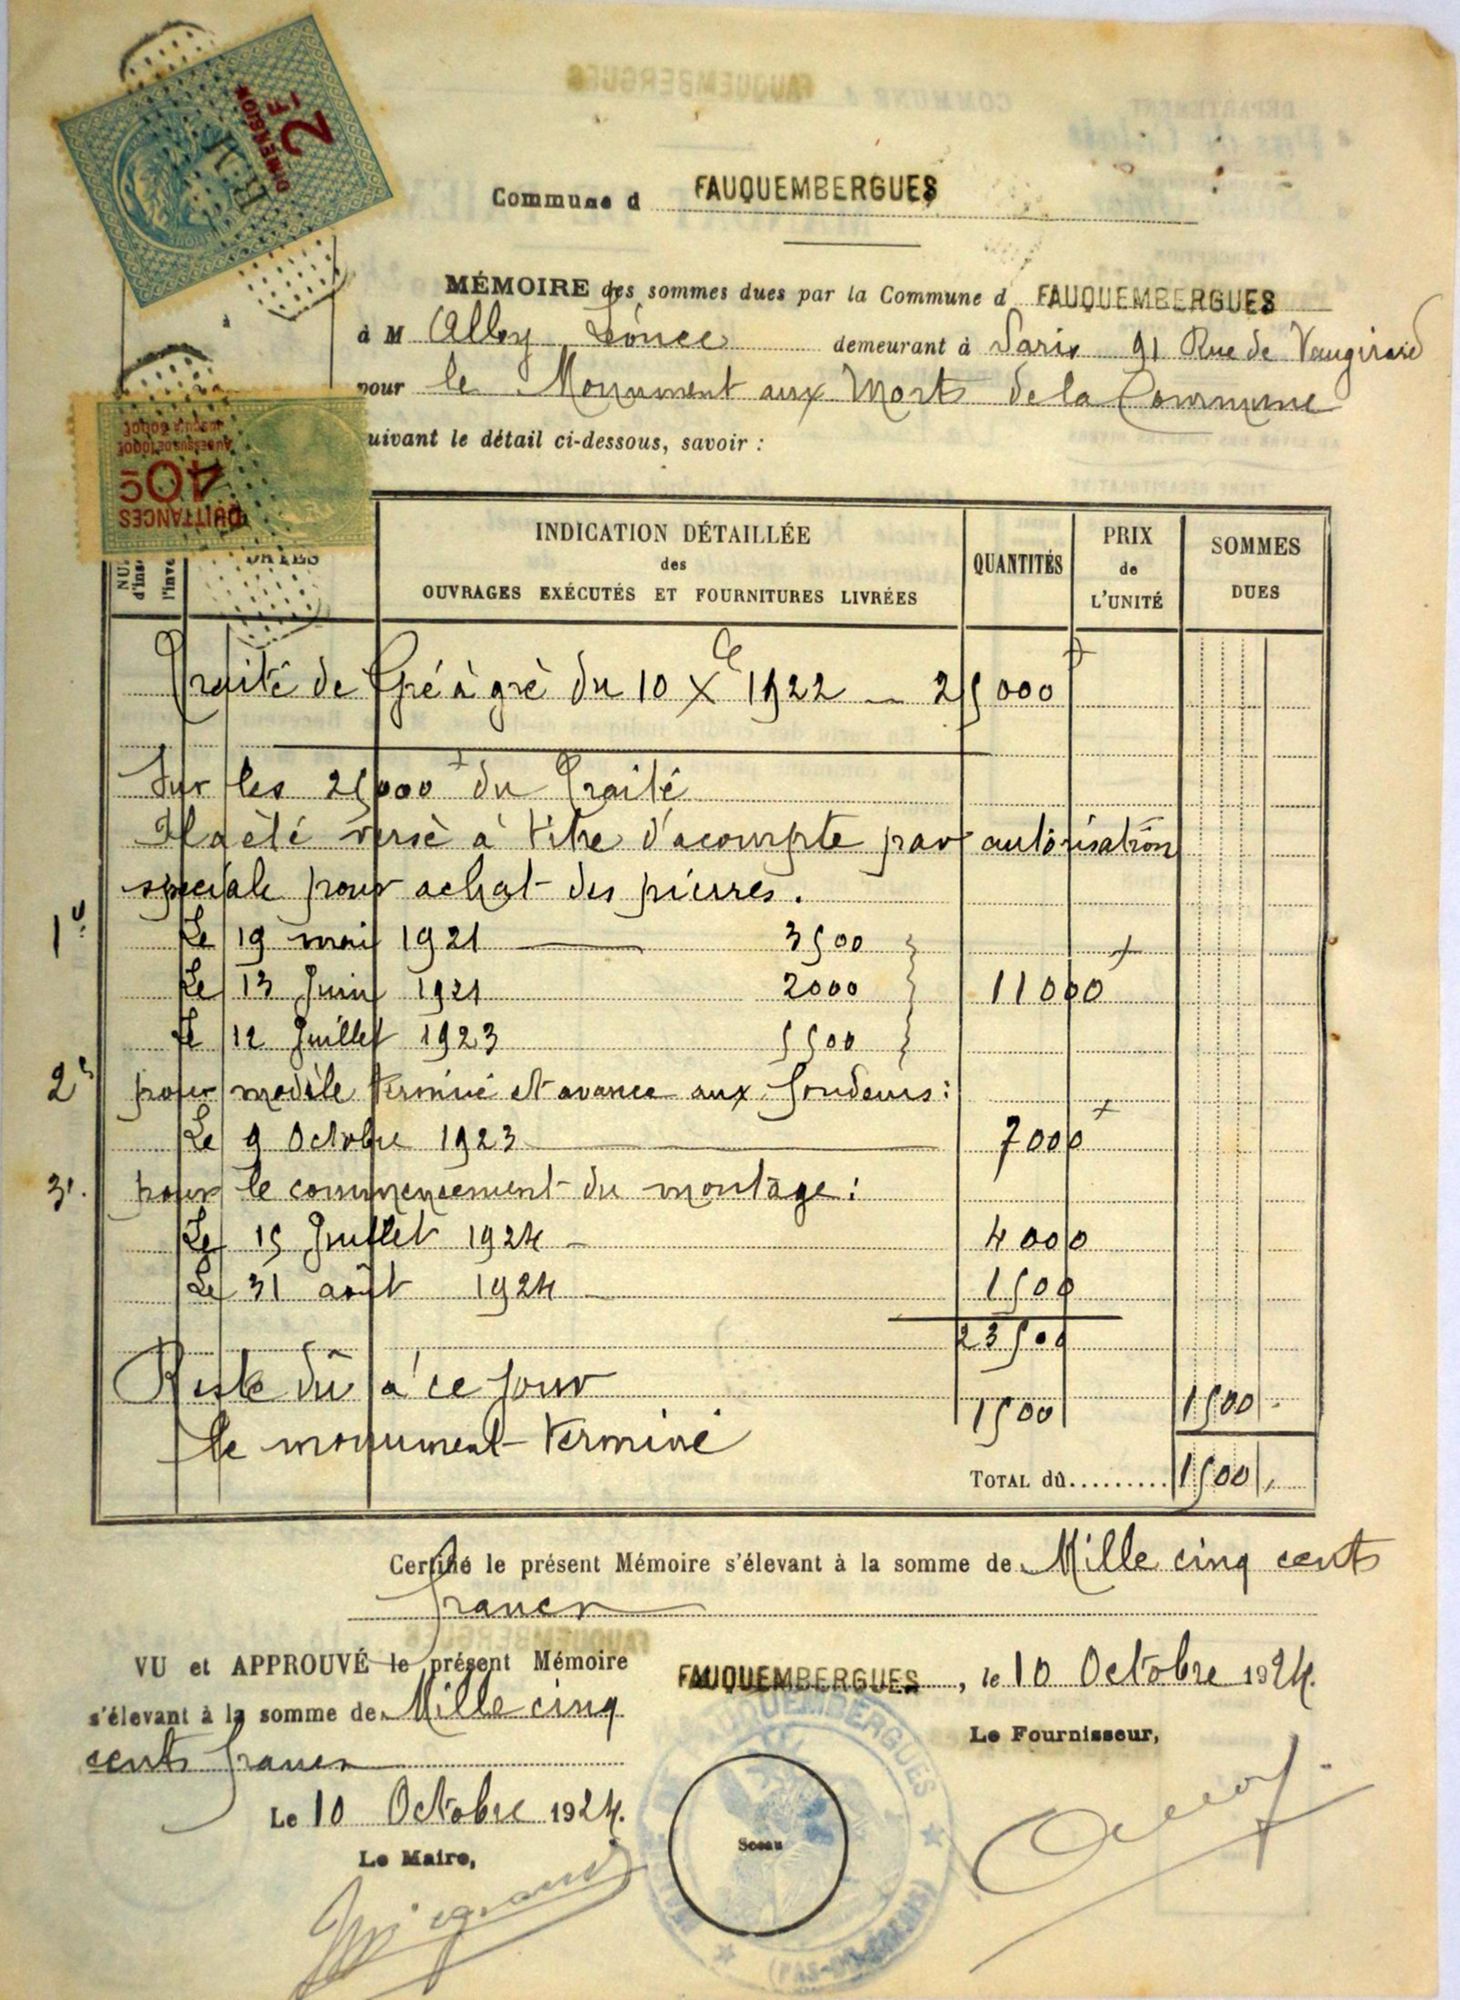 2F
DIMENSION
Commune d FAUQUEMBERGUES
MÉMOIRE des sommes dues par la Commune d FAUQUEMBERGUES
à M Alloy Léonce demeurant à Paris 91 Rue de Vaugirard
pour le Monument aux Morts de la Commune
uivant le détail ci-dessous, savoir :
QUITTANCES
40c
DATES
INDICATION DÉTAILLÉE
des
OUVRAGES EXÉCUTÉS ET FOURNITURES LIVRÉES
QUANTITÉS
PRIX
de
L'UNITÉ
SOMMES
DUES
Traité de Gré à gré du 10 Xce 1922 — 25000f
Sur les 25000f du Traité
Il a été versé à titre d'acompte par autorisation
spéciale pour achat des pierres.
1e Le 19 mai 1921 — 3500
Le 13 Juin 1921 2000 11000f
Le 12 Juillet 1923 5500
2e pour modèle terminé et avance aux fondeurs :
Le 9 Octobre 1923 — 7000f
3e. pour le commencement du montage :
Le 15 Juillet 1924 — 4000
Le 31 août 1924 — 1500
23500
Reste dû à ce jour 1500 1500 -
le monument terminé
TOTAL dû......... 1500 ,
Certifié le présent Mémoire s'élevant à la somme de Mille cinq cents
francs
VU et APPROUVÉ le présent Mémoire
s'élevant à la somme de Mille cinq
cents francs
Le 10 Octobre 1924.
Le Maire,
FAUQUEMBERGUES, le 10 Octobre 1924.
Le Fournisseur,
Sceau
MAIRIE DE FAUQUEMBERGUES
(PAS-DE-CALAIS)